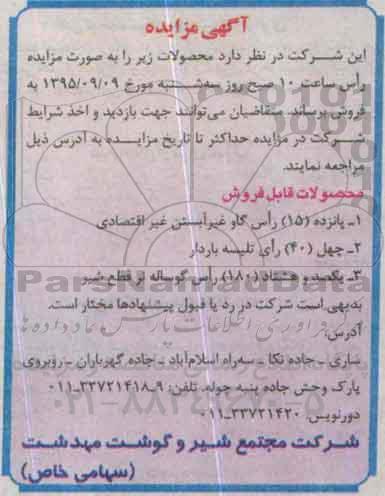 آگهی مزایده
این شرکت در نظر دارد محصولات زیر را به صورت مزایده
رأس ساعت ۱۰ صبح روز سه‌شنبه مورخ ۱۳۹۵/۰۹/۰۹ به
فروش برساند. متقاضیان می‌توانند جهت بازدید و اخذ شرایط
شرکت در مزایده حداکثر تا تاریخ مزایده به آدرس ذیل
مراجعه نمایند.
محصولات قابل فروش
۱ـ پانزده (۱۵) رأس گاو غیرآبستن غیر اقتصادی
۲ـ چهل (۴۰) رأی تلیسه باردار
۳ـ یکصد و هشتاد (۱۸۰) رأس گوساله نر قطع شیر
ParsNamadData
بدیهی است شرکت در رد یا قبول پیشنهادها مختار است.
آدرس:
ساری ـ جاده نکا ـ سه‌راه اسلام‌آباد ـ جاده گهرباران ـ روبروی
پارک وحش جاده پنبه چوله. تلفن: ۹ـ۳۳۷۲۱۴۱۸ـ۰۱۱
دورنویس: ۳۳۷۲۱۴۲۰ـ۰۱۱
شرکت مجتمع شیر و گوشت مهدشت
(سهامی خاص)